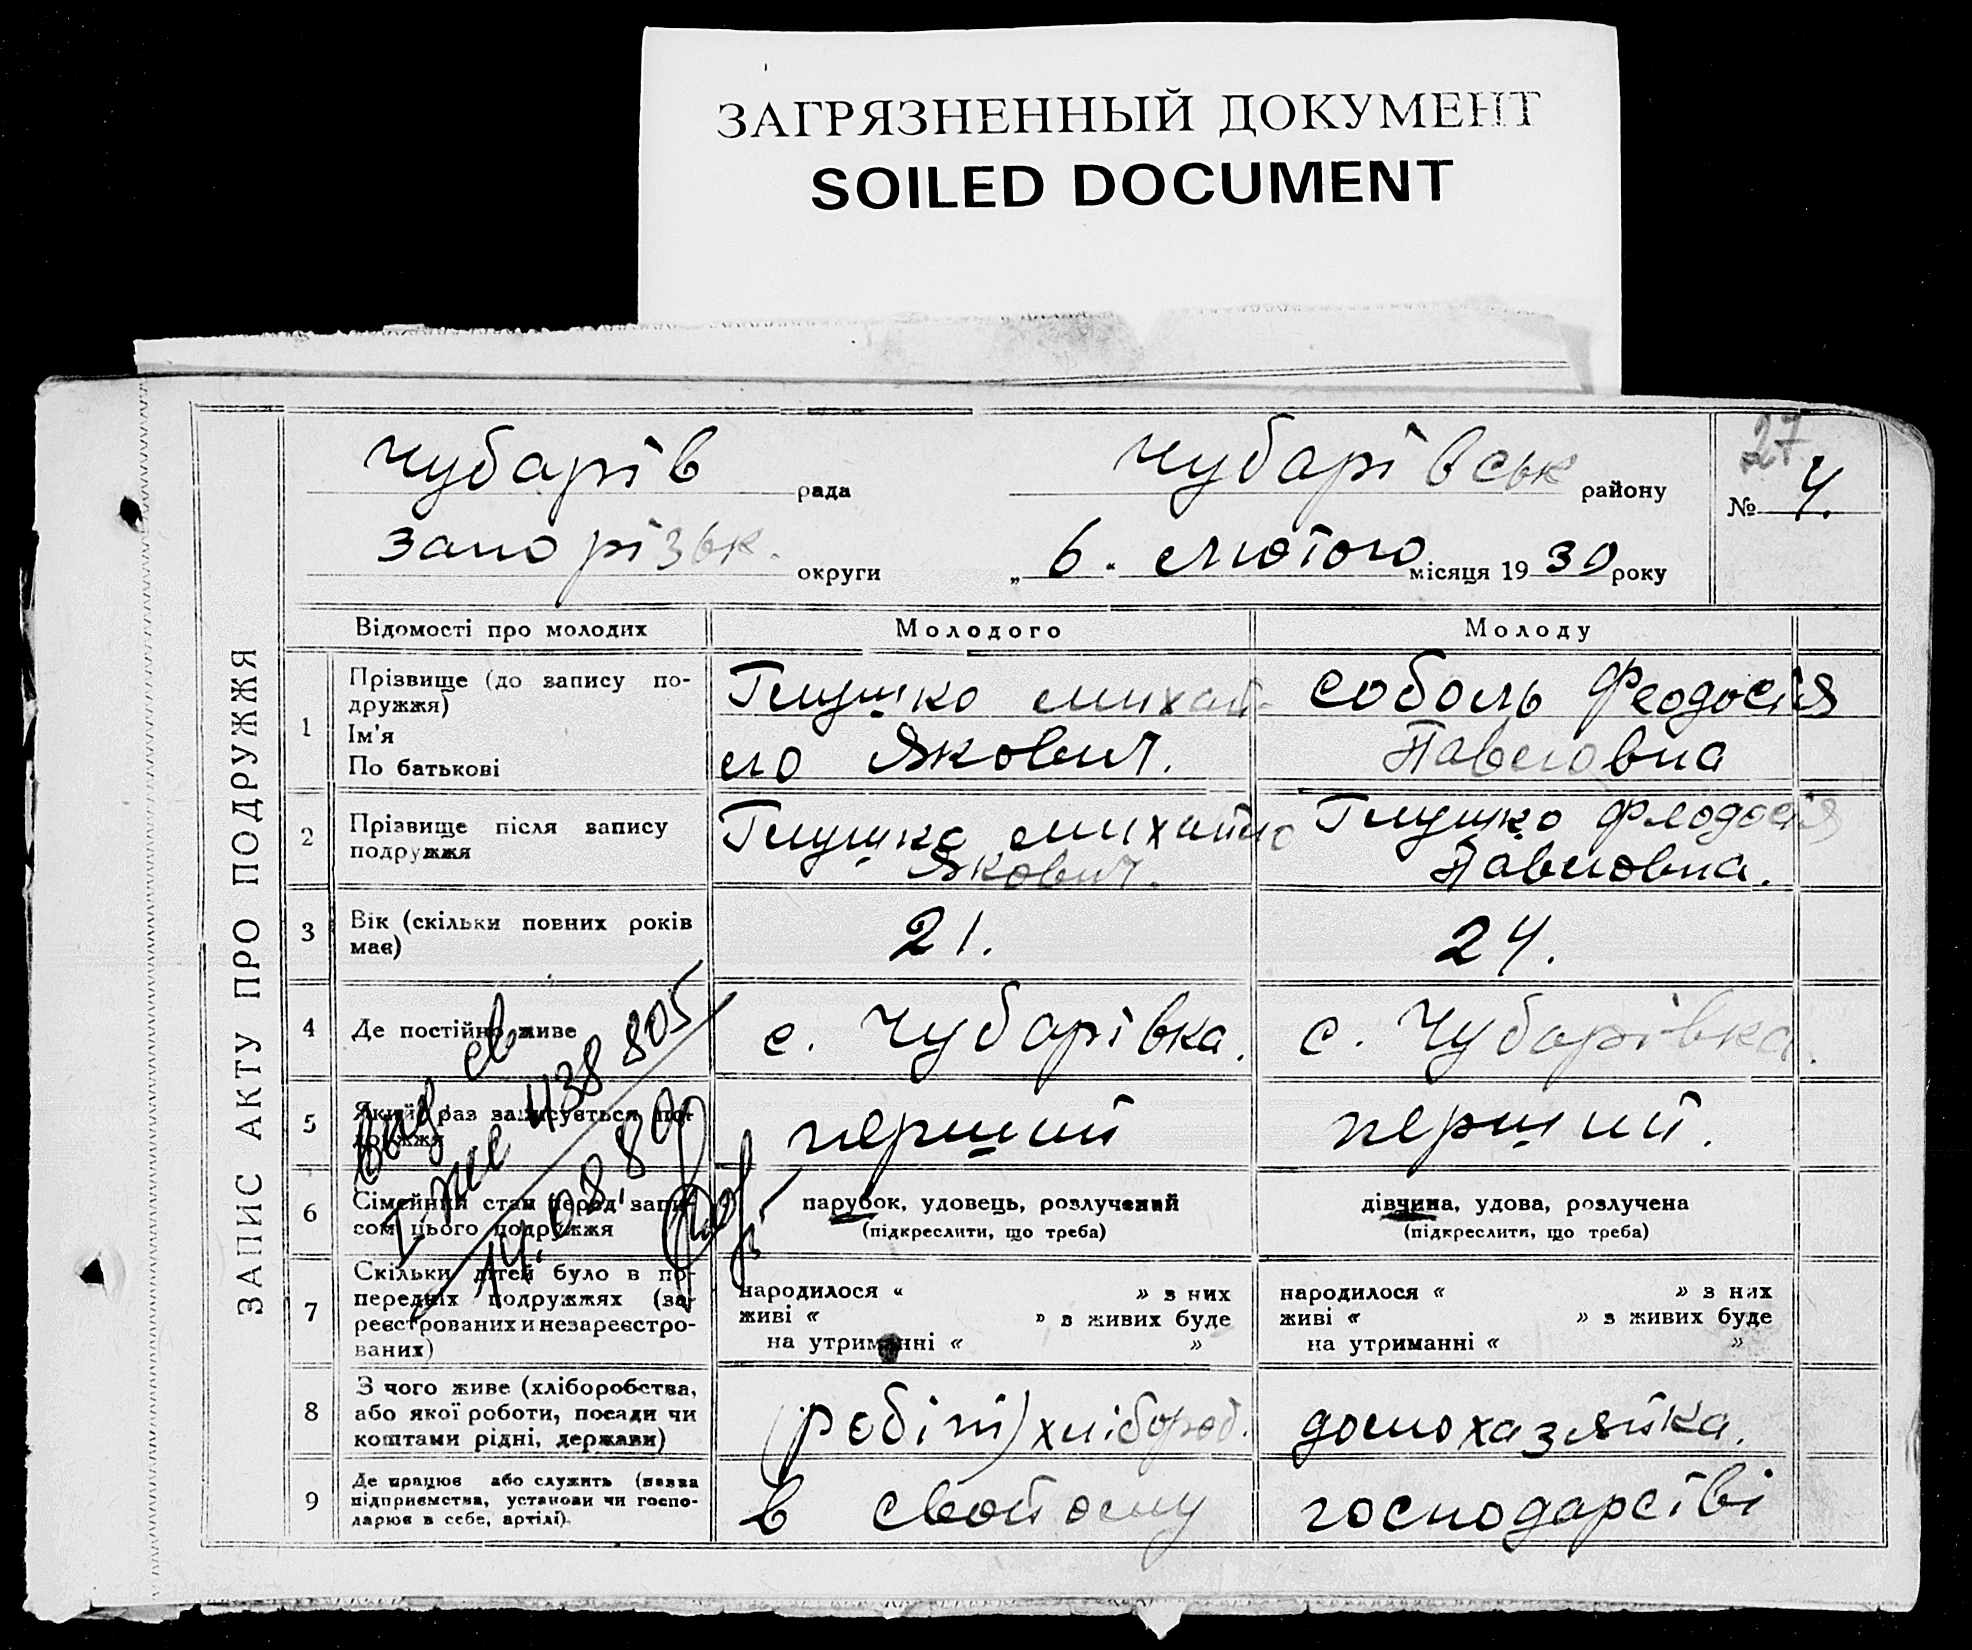 ЗАГРЯЗНЕННЫЙ ДОКУМЕНТ
SOILED DOCUMENT
27.
Чубарів рада Чубарівськ району № 4.
Запорізьк. округи „ 6. " лютого місяця 1930 року
ЗАПИС АКТУ ПРО ПОДРУЖЖЯ
Відомості про молодих Молодого Молоду
1 Прізвище (до запису по-
дружжя)
Ім'я
По батькові
Глушко Михай-
ло Якович.
Соболь Феодосія
Павловна
2 Прізвище після запису
подружжя
Глушко Михайло
Якович.
Глушко Феодосія
Павловна.
3 Вік (скільки повних років
має)
21.
24.
4 Де постійно живе
с. Чубарівка.
с. Чубарівка.
5 Який раз записується по-
дружжя
перший
перший.
6 Сімейний стан перед запи-
сом цього подружжя
парубок, удовець, розлучений
(підкреслити, що треба)
дівчина, удова, розлучена
(підкреслити, що треба)
7 Скільки дітей було в по-
передніх подружжях (за-
реєстрованих и незареєстро-
ваних)
народилося « » з них
живі « » з живих буде
на утриманні « »
народилося « » з них
живі « » з живих буде
на утриманні « »
8 З чого живе (хліборобства,
або якої роботи, посади чи
коштами рідні, держави)
(робіт) хлібороб.
домохазяйка.
9 Де працює або служить (назва
підприємства, установи чи госпо-
дарює в себе, артілі).
в свойому
господарстві
438 805
14.08.80